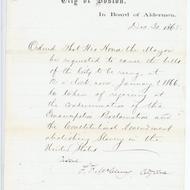 City of Boston.
In Board of Aldermen.
Dec. 30, 1865.
Ordered That His Honor the Mayor
be requested to cause the bells
of the City to be rung at
o'clock noon, January 1, 1866,
in token of rejoicing at
the consummation of the
Emancipation Proclamation and
the Constitutional Amendment
abolishing Slavery in the
United States.